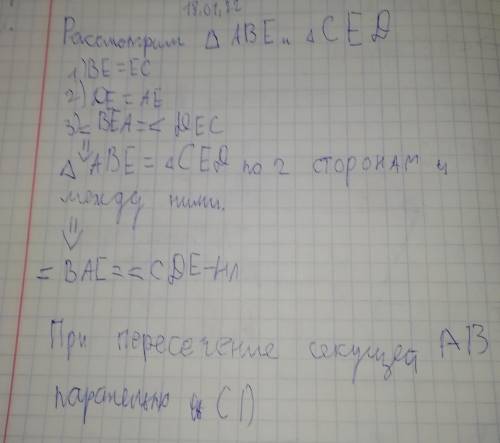 18.01.22
Рассмотрим △ ABE и △ CED
1) BE = EC
2) DE = AE
3) < BEA = < DEC
⇓
△ ABE = △ CED по 2 сторонам и
между ними.
⇓
= BAE = < CDE – НЛ
При пересечение секущей AB
паралельно CD